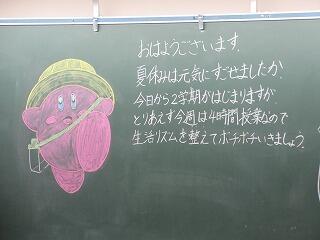 おはようございます。
夏休みは元気にすごせましたか。
今日から2学期がはじまりますが
とりあえず今週は4時間授業なので
生活リズムを整えてボチボチいきましょう。